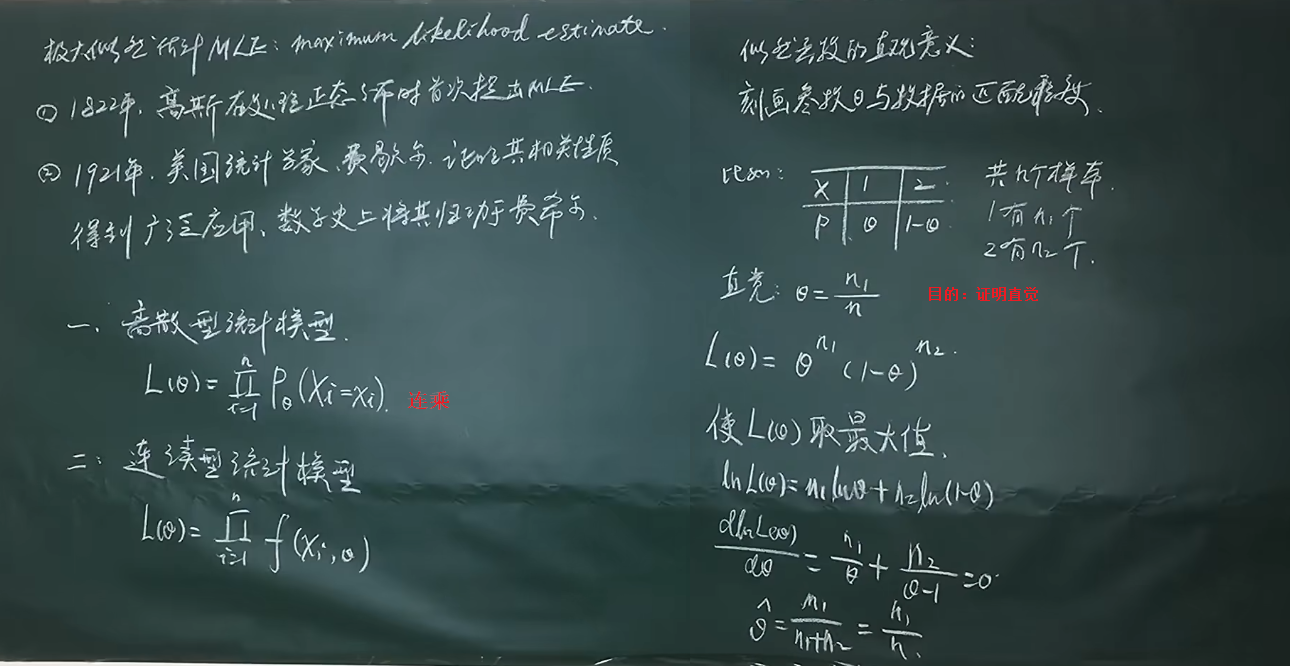 极大似然估计MLE: maximum likelihood estimate.
① 1822年, 高斯在处理正态分布时首次提出MLE.
② 1921年, 英国统计学家, 费歇尔. 证明其相关性质
得到广泛应用, 数学史上将其归功于费希尔.
一、离散型统计模型.
L(θ)=∏_{i=1}^{n} P_θ(X_i=x_i). 连乘
二: 连续型统计模型
L(θ)=∏_{i=1}^{n} f(x_i, θ)
似然函数的直观意义:
刻画参数θ与数据的匹配程度.
比如: X | 1 | 2 共n个样本.
P | θ | 1-θ 1有n₁个
2有n₂个.
直觉: θ=n₁/n 目的：证明直觉
L(θ)= θ^{n₁} (1-θ)^{n₂}.
使L(θ)取最大值.
lnL(θ)=n₁lnθ+n₂ln(1-θ)
dlnL(θ)/dθ = n₁/θ + n₂/(θ-1) =0
θ̂ = n₁/(n₁+n₂) = n₁/n.